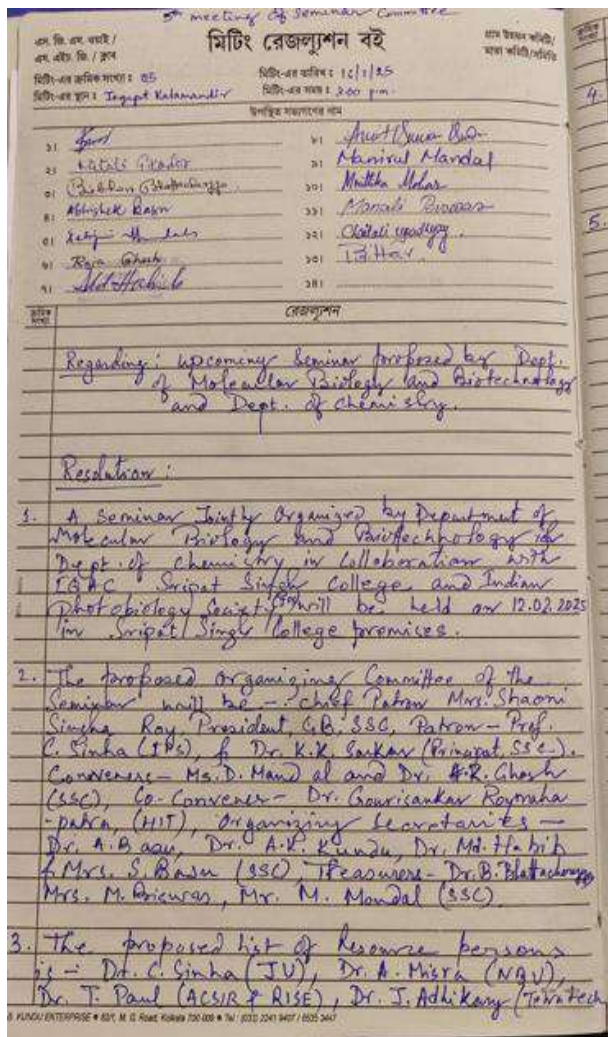 5th meeting of Seminar Committee
এস. জি. এস. ওয়াই /
এস. এইচ. জি. / ক্লাব
মিটিং রেজল্যুশন বই
গ্রাম উন্নয়ন কমিটি/
মাতা কমিটি/সমিতি
মিটিং-এর ক্রমিক সংখ্যা : 05
মিটিং-এর তারিখ : 16/1/25
মিটিং-এর স্থান : Iagapt Kalamandir
মিটিং-এর সময় : 2:00 p.m.
উপস্থিত সভ্যগণের নাম
১।
২।
৩। Bibhas Bhattacharyya
৪। Abhishek Basu
৫।
৬। Raja Ghosh
৭। Md Habib
৮।
৯। Manirul Mandal
১০।
১১। Manali Biswas
১২। Chaitali upadhyay.
১৩।
১৪।
ক্রমিক সংখ্যা
রেজল্যুশন
Regarding : upcoming Seminar proposed by Dept.
of Molecular Biology and Biotechnology
and Dept. of Chemistry.
Resolution :
1. A Seminar Jointly Organized by Department of
Molecular Biology and Biotechnology &
Dept. of Chemistry in Collaboration with
IQAC Sripat Singh College and Indian
Photobiology Society will be held on 12.02.2025
in Sripat Singh College premises.
2. The proposed organizing Committee of the
Seminar will be - Chief Patron Mrs. Shaoni
Singha Roy, President, G.B. SSC, Patron - Prof.
C. Sinha (IPS), & Dr. K.K. Sarkar (Principal, SSC).
Conveners - Ms. D. Mandal and Dr. A.R. Ghosh
(SSC), Co-Convener - Dr. Gourisankar Roymaha
-patra, (HIT), Organizing Secretaries -
Dr. A. Basu, Dr. A.K. Kundu, Dr. Md. Habib
& Mrs. S. Basu (SSC), Treasurers - Dr. B. Bhattacharyya
Mrs. M. Biswas, Mr. M. Mondal (SSC).
3. The proposed list of Resource persons
is - Dr. C. Sinha (JU), Dr. A. Misra (NBU),
Dr. T. Paul (ACSIR & RISE), Dr. J. Adhikary (
KUNDU ENTERPRISE • 82/1, M. G. Road, Kolkata 700 009 • Tel : (033) 2241 9407 / 6535 3447
4.
5.